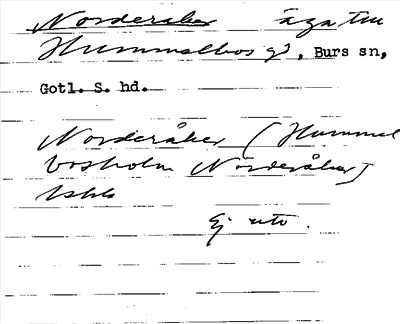 Norderåker äga till
Hummelbos gd, Burs sn,
Gotl. S. hd.
Norderåker (Hummel
bosholm Norderåker)
Ej utv.